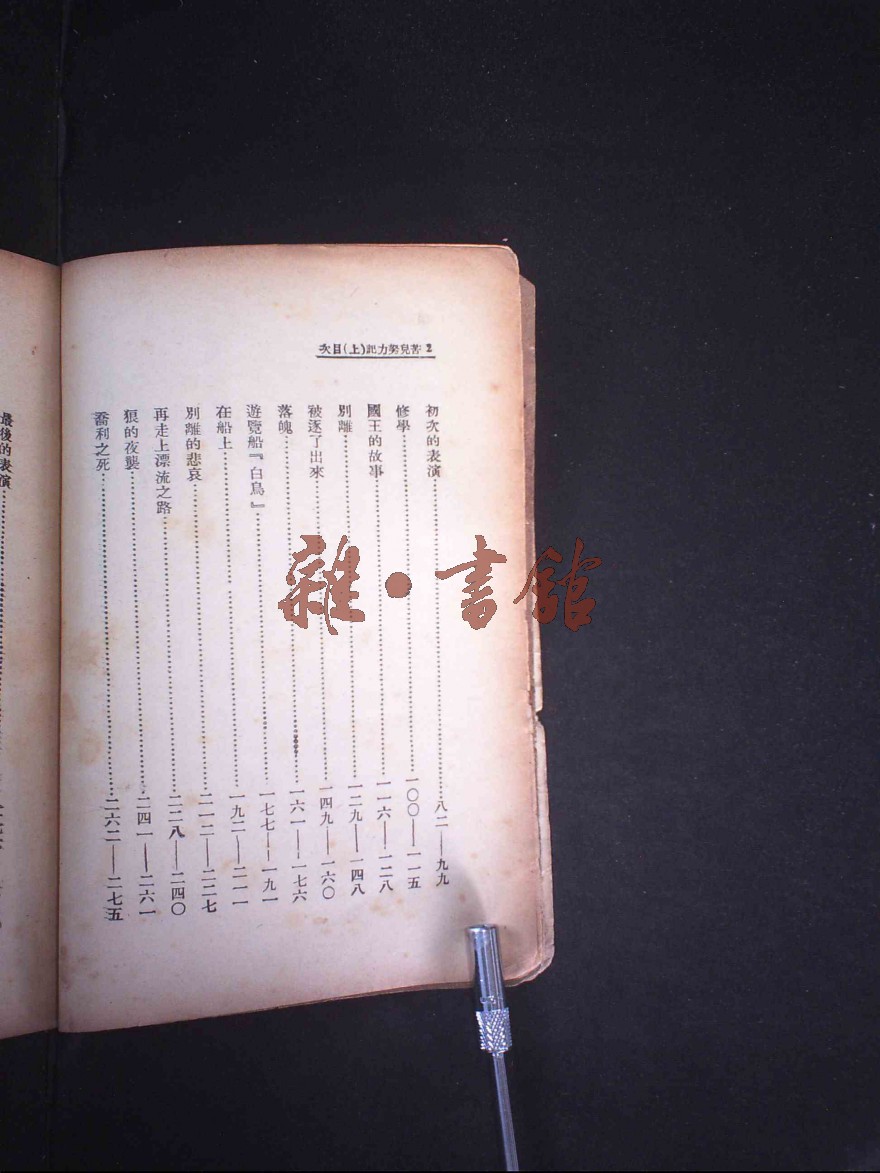 次目(上)記力努兒苦 2
初次的表演⋯⋯八二——九九
修學⋯⋯一〇〇——一一五
國王的故事⋯⋯一一六——一二八
別離⋯⋯一二九——一四八
被逐了出來⋯⋯一四九——一六〇
落魄⋯⋯一六一——一七六
遊覽船『白鳥』⋯⋯一七七——一九一
在船上⋯⋯一九二——二一一
別離的悲哀⋯⋯二一二——二二七
再走上漂流之路⋯⋯二二八——二四〇
狼的夜襲⋯⋯二四一——二六一
喬利之死⋯⋯二六二——二七五
最後的表演
雜·書館